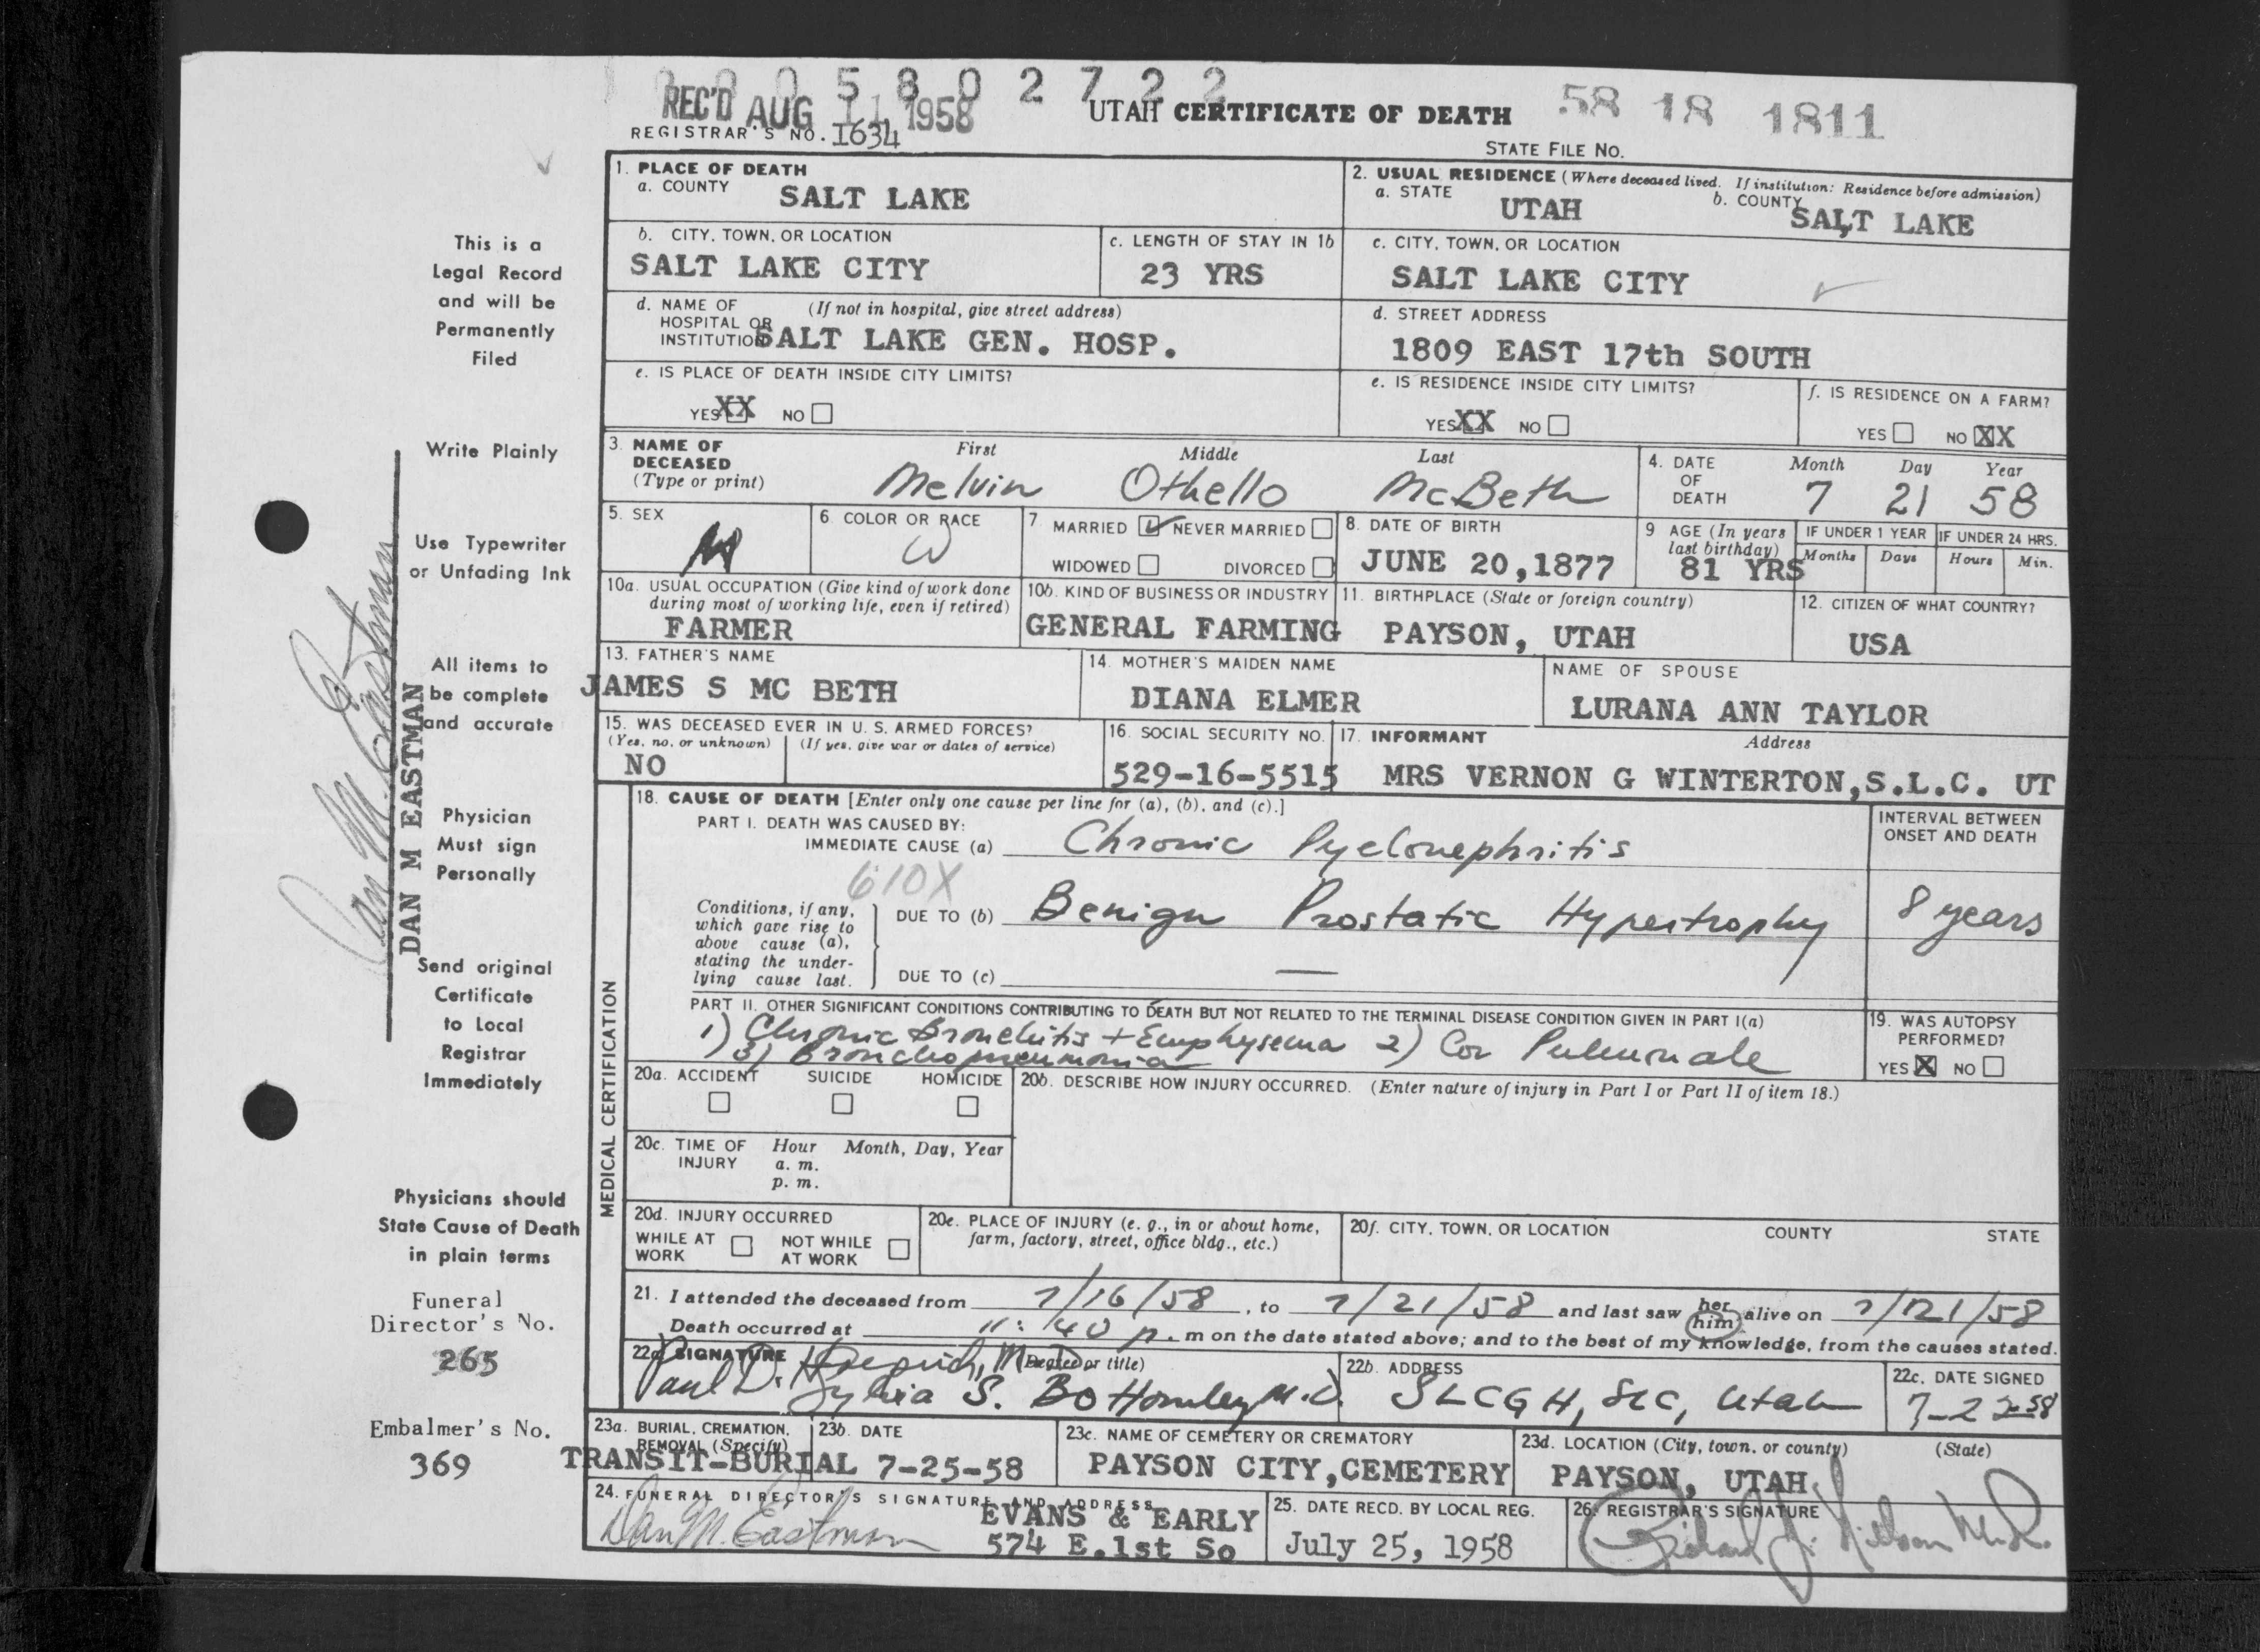 0 0 0 5 8 0 2 7 2 2
REC'D AUG 11 1958
UTAH CERTIFICATE OF DEATH 58 18 1811
REGISTRAR'S NO. I634
STATE FILE NO.
This is a
Legal Record
and will be
Permanently
Filed
Write Plainly
Use Typewriter
or Unfading Ink
All items to
be complete
and accurate
Physician
Must sign
Personally
Send original
Certificate
to Local
Registrar
Immediately
Physicians should
State Cause of Death
in plain terms
Funeral
Director's No.
265
Embalmer's No.
369
Dan M. Eastman
DAN M EASTMAN
1. PLACE OF DEATH
a. COUNTY SALT LAKE
2. USUAL RESIDENCE (Where deceased lived. If institution: Residence before admission)
a. STATE UTAH b. COUNTY SALT LAKE
b. CITY, TOWN, OR LOCATION
SALT LAKE CITY
c. LENGTH OF STAY IN 1b
23 YRS
c. CITY, TOWN, OR LOCATION
SALT LAKE CITY
d. NAME OF (If not in hospital, give street address)
HOSPITAL OR
INSTITUTION SALT LAKE GEN. HOSP.
d. STREET ADDRESS
1809 EAST 17th SOUTH
e. IS PLACE OF DEATH INSIDE CITY LIMITS?
YES XX NO
e. IS RESIDENCE INSIDE CITY LIMITS?
YES XX NO
f. IS RESIDENCE ON A FARM?
YES NO XX
3. NAME OF First Middle Last
DECEASED
(Type or print) Melvin Othello McBeth
4. DATE Month Day Year
OF
DEATH 7 21 58
5. SEX
M
6. COLOR OR RACE
W
7. MARRIED ✓ NEVER MARRIED
WIDOWED DIVORCED
8. DATE OF BIRTH
JUNE 20,1877
9 AGE (In years
last birthday)
81 YRS
IF UNDER 1 YEAR IF UNDER 24 HRS.
Months Days Hours Min.
10a. USUAL OCCUPATION (Give kind of work done
during most of working life, even if retired)
FARMER
10b. KIND OF BUSINESS OR INDUSTRY
GENERAL FARMING
11. BIRTHPLACE (State or foreign country)
PAYSON, UTAH
12. CITIZEN OF WHAT COUNTRY?
USA
13. FATHER'S NAME
JAMES S MC BETH
14. MOTHER'S MAIDEN NAME
DIANA ELMER
NAME OF SPOUSE
LURANA ANN TAYLOR
15. WAS DECEASED EVER IN U. S. ARMED FORCES?
(Yes, no, or unknown) (If yes, give war or dates of service)
NO
16. SOCIAL SECURITY NO.
529-16-5515
17. INFORMANT Address
MRS VERNON G WINTERTON,S.L.C. UT
MEDICAL CERTIFICATION
18. CAUSE OF DEATH [Enter only one cause per line for (a), (b), and (c).]
PART I. DEATH WAS CAUSED BY:
IMMEDIATE CAUSE (a) Chronic Pyelonephritis
INTERVAL BETWEEN
ONSET AND DEATH
610X
Conditions, if any,
which gave rise to
above cause (a),
stating the under-
lying cause last.
DUE TO (b) Benign Prostatic Hypertrophy 8 years
DUE TO (c) —
PART II. OTHER SIGNIFICANT CONDITIONS CONTRIBUTING TO DEATH BUT NOT RELATED TO THE TERMINAL DISEASE CONDITION GIVEN IN PART I(a)
1) Chronic Bronchitis + Emphysema 2) Cor Pulmonale
3) Bronchopneumonia
19. WAS AUTOPSY
PERFORMED?
YES X NO
20a. ACCIDENT SUICIDE HOMICIDE
20b. DESCRIBE HOW INJURY OCCURRED. (Enter nature of injury in Part I or Part II of item 18.)
20c. TIME OF Hour Month, Day, Year
INJURY a. m.
p. m.
20d. INJURY OCCURRED
WHILE AT NOT WHILE
WORK AT WORK
20e. PLACE OF INJURY (e. g., in or about home,
farm, factory, street, office bldg., etc.)
20f. CITY, TOWN, OR LOCATION COUNTY STATE
21. I attended the deceased from 7/16/58, to 7/21/58 and last saw her him alive on 7/21/58
Death occurred at 11:40 p. m on the date stated above; and to the best of my knowledge, from the causes stated.
22a. SIGNATURE (Degree or title)
Paul D. M.D.
Sylvia S. Bottomley M.D.
22b. ADDRESS
SLCGH, SLC, Utah
22c. DATE SIGNED
7-22-58
23a. BURIAL, CREMATION,
REMOVAL (Specify)
TRANSIT-BURIAL
23b. DATE
7-25-58
23c. NAME OF CEMETERY OR CREMATORY
PAYSON CITY,CEMETERY
23d. LOCATION (City, town, or county) (State)
PAYSON, UTAH
24. FUNERAL DIRECTOR'S SIGNATURE AND ADDRESS
Dan M. Eastman
EVANS & EARLY
574 E.1st So
25. DATE RECD. BY LOCAL REG.
July 25, 1958
26. REGISTRAR'S SIGNATURE